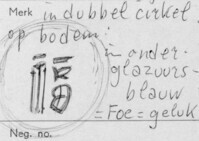 Merk in dubbel cirkel
op bodem:
福
in onder-
glazuurs-
blauw
= Foe = geluk
Neg. no.